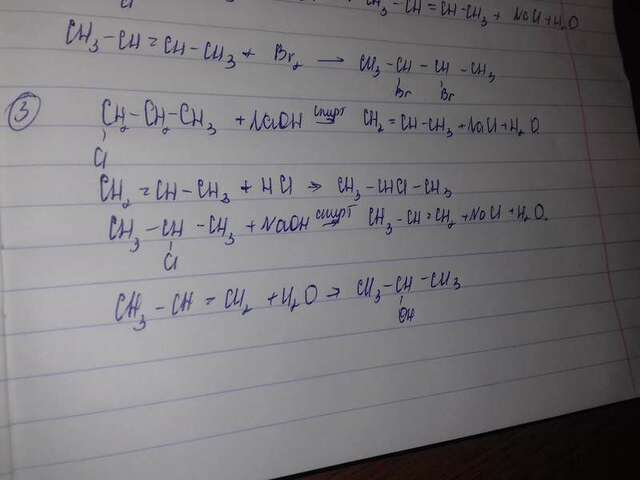 CH₃-CH=CH-CH₃ + NaCl+H₂O
CH₃-CH=CH-CH₃ + Br₂ → CH₃-CH-CH-CH₃
Br Br
③ CH₂-CH₂-CH₃ + NaOH спирт→ CH₂=CH-CH₃+NaCl+H₂O
Cl
CH₂=CH-CH₃ + HCl → CH₃-CHCl-CH₃
CH₃-CH-CH₃ + NaOH спирт→ CH₃-CH=CH₂+NaCl+H₂O.
Cl
CH₃-CH=CH₂ +H₂O → CH₃-CH-CH₃
OH